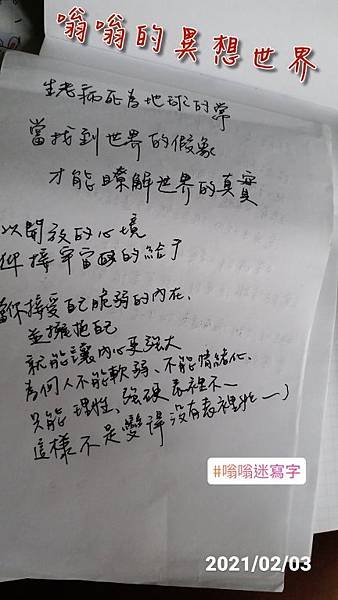 嗡嗡的異想世界
生老病死為地球的常
當找到世界的假象
才能瞭解世界的真實
以開放的心境
迎接宇宙的給予
當你接受自己脆弱的內在、
並擁抱自己
就能讓內心更強大
為何人不能軟弱、不能情緒化、
只能理性、強硬表裡不一
這樣不是變得沒有表裡如一
#嗡嗡迷寫字
2021/02/03